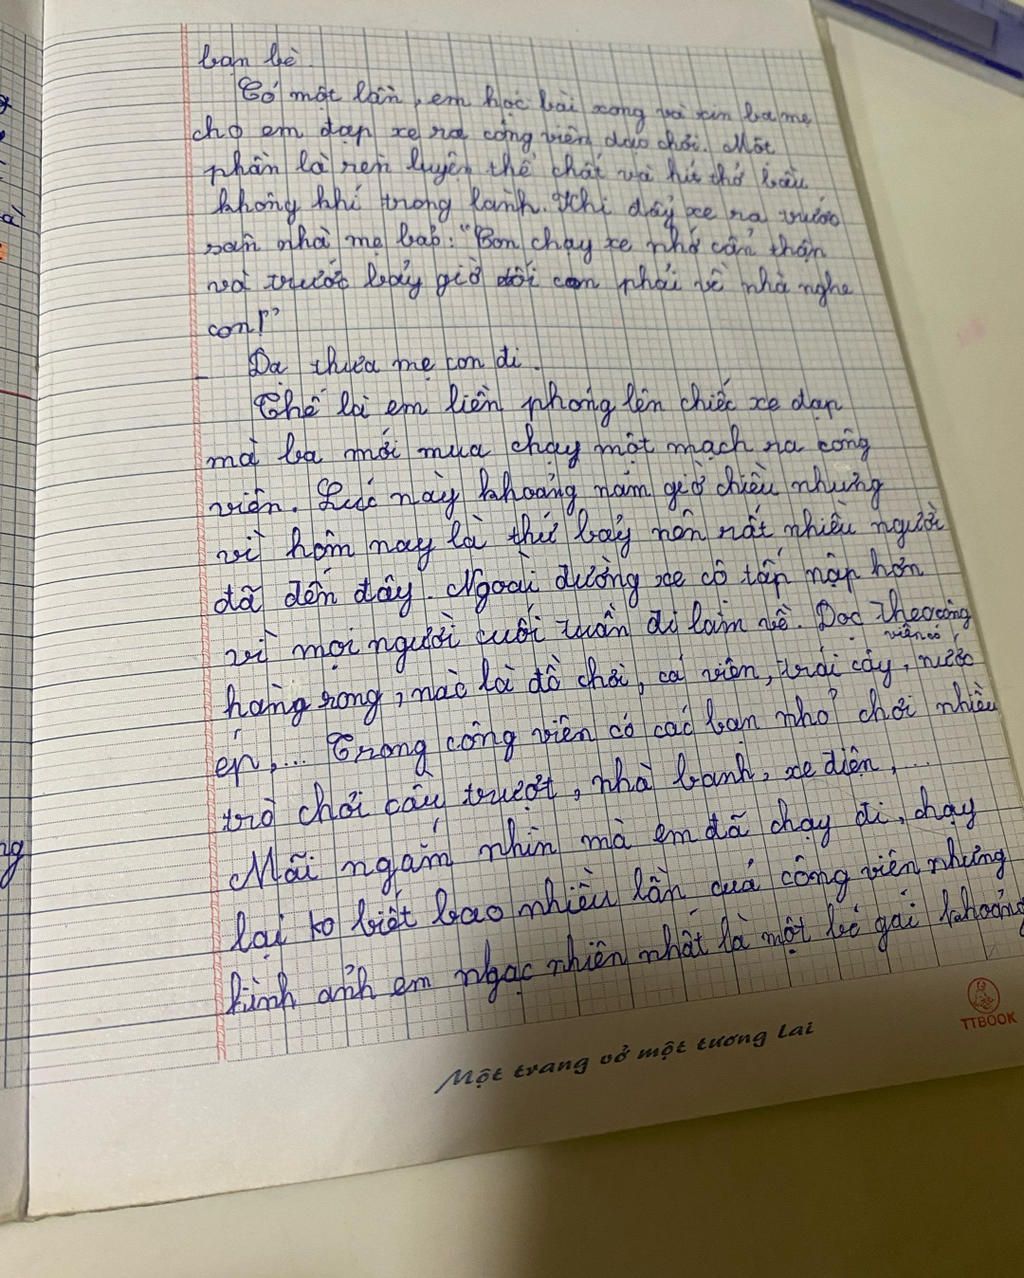 bạn bè.
Có một lần, em học bài xong và xin ba mẹ
cho em đạp xe ra công viên dạo chơi. Một
phần là rèn luyện thể chất và hít thở bầu
không khí trong lành. Khi dẩy xe ra trước
sân nhà mẹ bảo: "Con chạy xe nhớ cẩn thận
và trước bảy giờ tối con phải về nhà nghe
con!"
- Dạ thưa mẹ con đi.
Thế là em liền phóng lên chiếc xe đạp
mà ba mới mua chạy một mạch ra công
viên. Lúc này khoảng năm giờ chiều nhưng
vì hôm nay là thứ bảy nên rất nhiều người
đã đến đây. Ngoài đường xe cộ tấp nập hơn
vì mọi người cuối tuần đi làm về. Dọc theo công
viên có
hàng rong, nào là đồ chơi, cá viên, trái cây, nước
ép,... Trong công viên có các bạn nhỏ chơi nhiều
trò chơi cầu trượt, nhà banh, xe điện,...
Mãi ngắm nhìn mà em đã chạy đi, chạy
lại ko biết bao nhiêu lần quá công viên nhưng
hình ảnh em ngạc nhiên nhất là một bé gái khoảng
Một trang vở một tương lai
TTBOOK